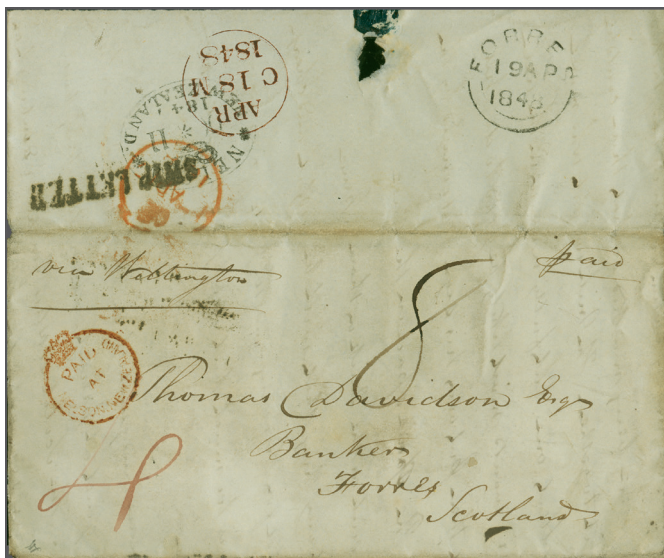 FORRES
19 AP
1848
APR
C 18 M
1848
NEW ZEALAND
184
SHIP LETTER
via Wellington
paid
8
PAID
AT
4
Thomas Davidson Esq
Banker
Forres
Scotland